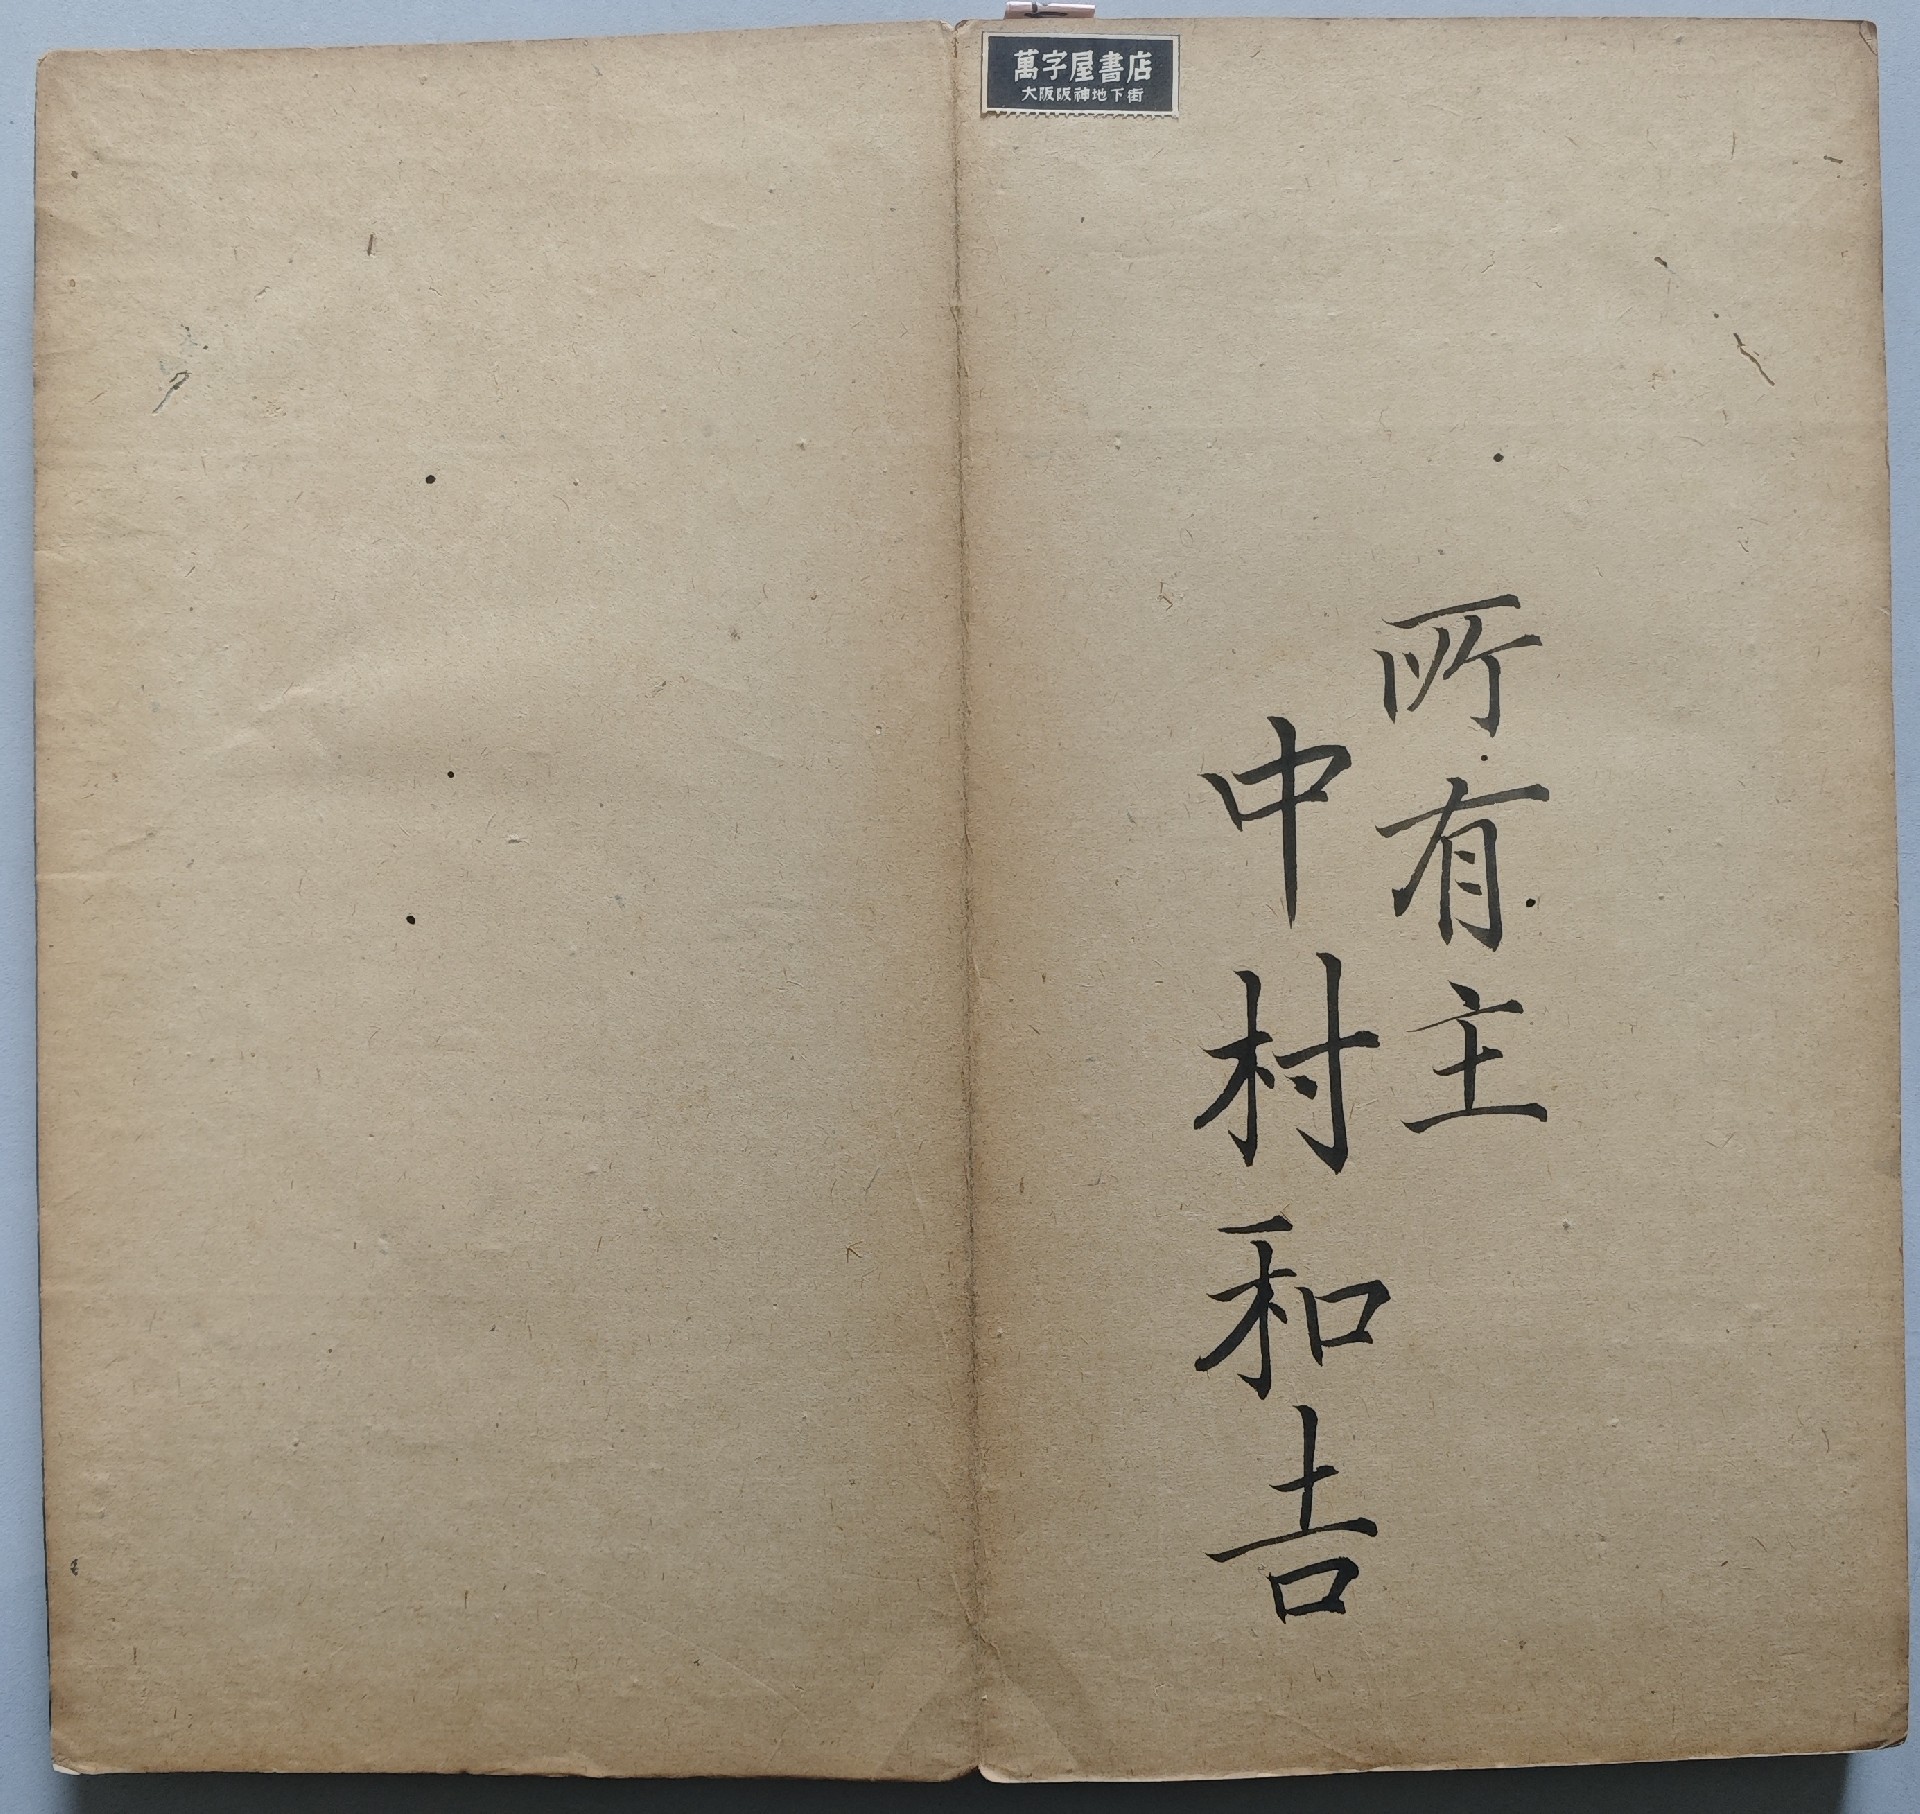 萬字屋書店
大阪阪神地下街
所有主
中村和吉